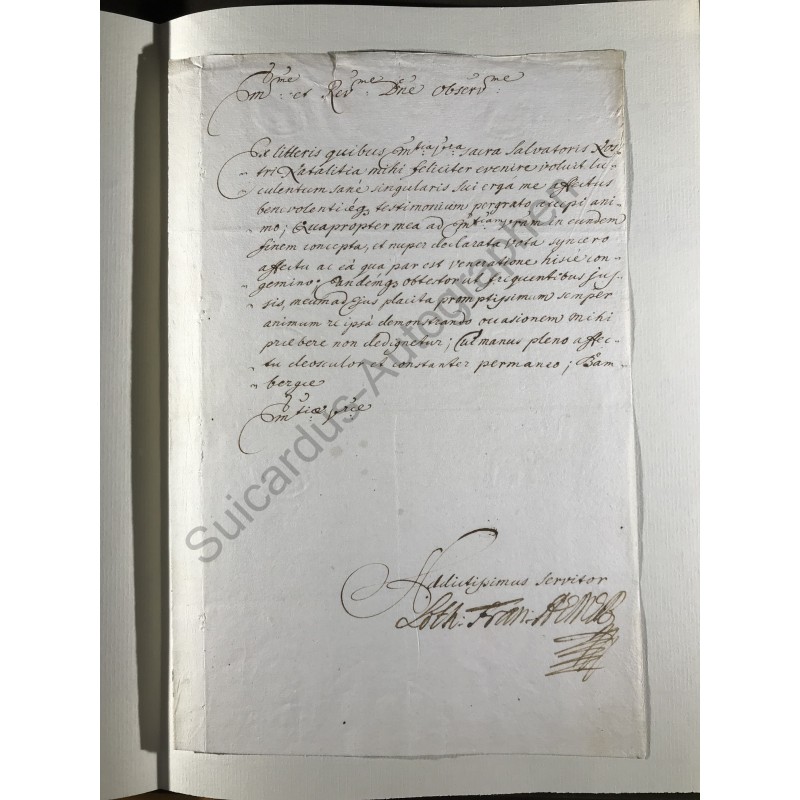 Em̄me et Revme Dn̄e Observme
Ex litteris quibus Emtia Vra sacra Salvatoris Nos-
tri Natalitia mihi feliciter evenire voluit lu-
culentum sanè singularis sui erga me affectus
benevolentiæq testimonium pergrato accepi ani-
mo; Quapropter mea ad Emtiam Vram in eundem
finem concepta, et nuper declarata vota syncero
affectu ac eâ qua par est veneratione hisce con-
gemino; Eandemq obtestor ut frequentibus jus-
sis, meum ad Ejus placita promptissimum semper
animum re ipsâ demonstrando occasionem mihi
præbere non dedignetur; Cui manus pleno affec-
tu deosculor et constanter permaneo; Bam-
bergæ
Emtiæ Vræ
Addictissimus servitor
Loth: Fran:
Suicardus-Autographen